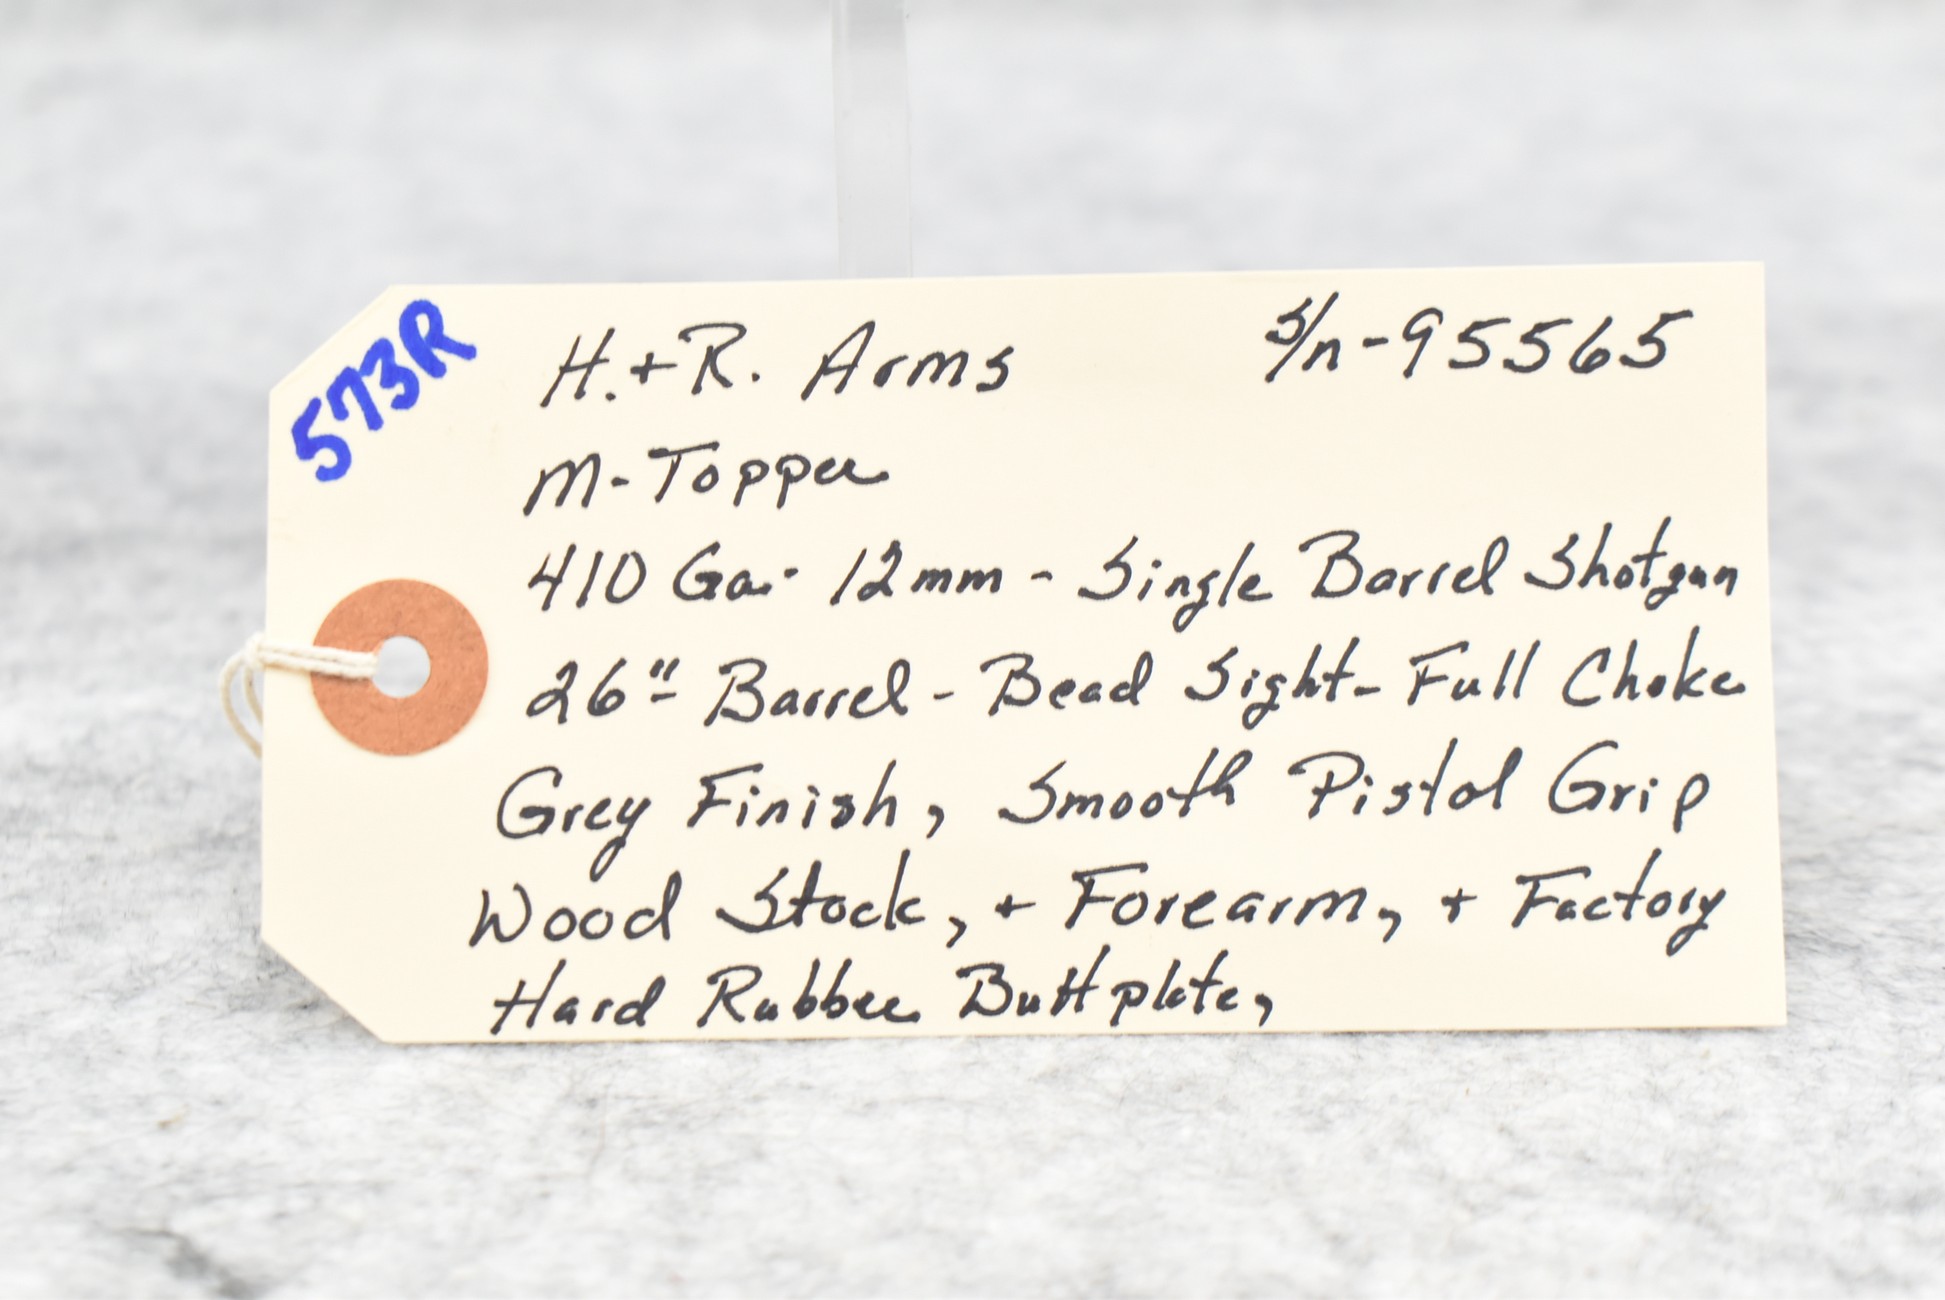 573R
H.+R. Arms S/n-95565
M-Topper
410 Ga. 12mm - Single Barrel Shotgun
26"- Barrel - Bead Sight - Full Choke
Grey Finish, Smooth Pistol Grip
Wood Stock, + Forearm, + Factory
Hard Rubber Buttplate,